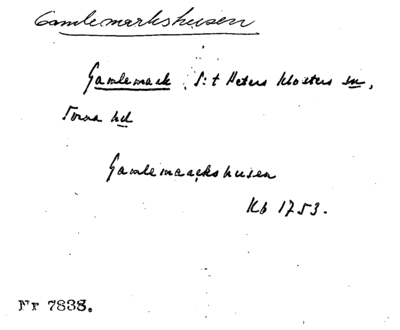 Gamlemarkshusen
Gamlemark S:t Peters Klosters sn,
Torna hd
Gamlemaackshusen
Kb 1753.
Nr 7838.